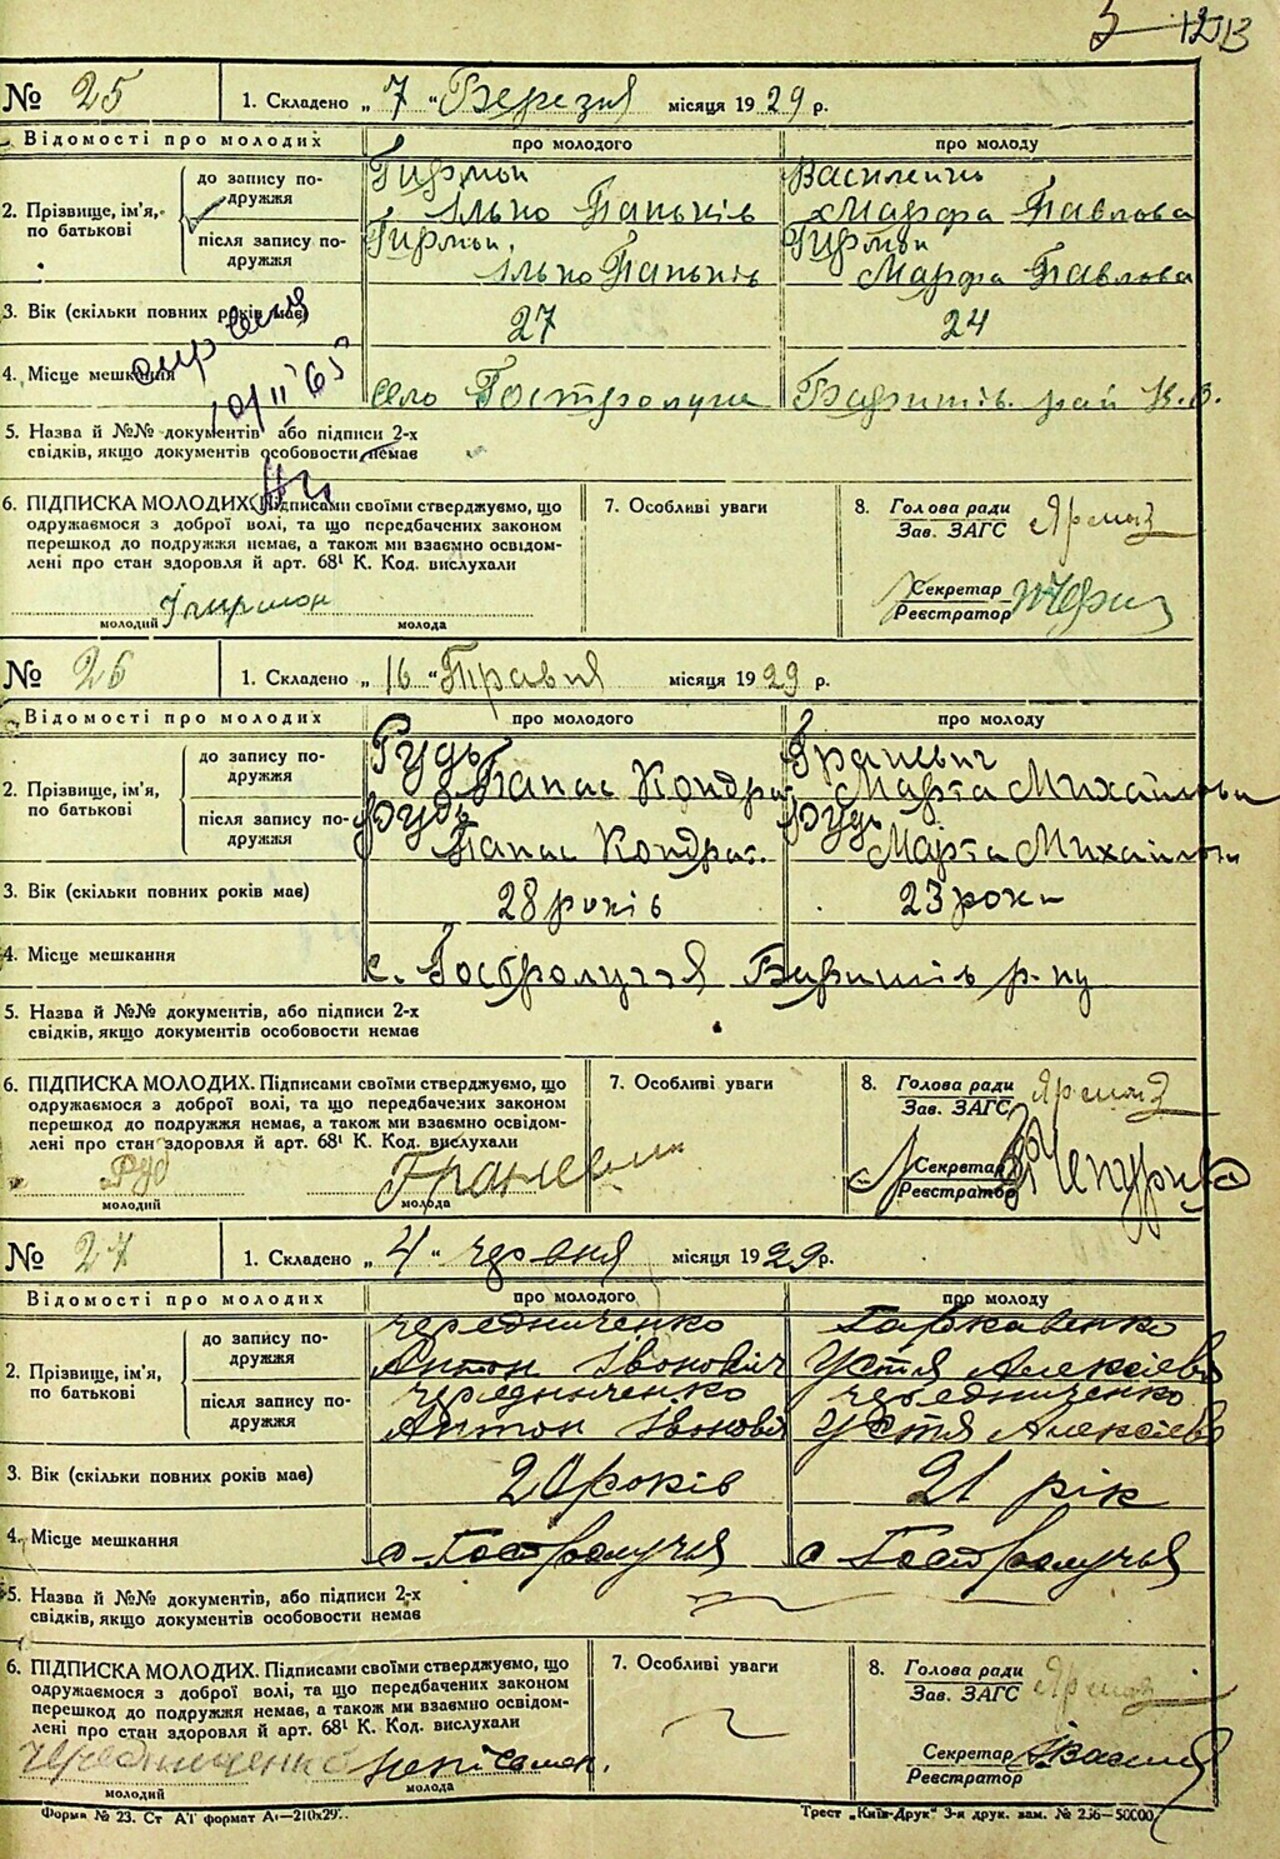 № 25 1. Складено „ 7 " Березня місяця 19 29 р.
Відомості про молодих про молодого про молоду
2. Прізвище, ім'я, по батькові
до запису подружжя
Гирмон Ілько Паньків
Василенко Марфа Павлова
після запису подружжя
Гирмон Ілько Паньків
Гирмон Марфа Павлова
3. Вік (скільки повних років має) 27 24
4. Місце мешкання село Гостролуча Баришів. рай К.О.
5. Назва й №№ документів або підписи 2-х
свідків, якщо документів особовости немає
6. ПІДПИСКА МОЛОДИХ. Підписами своїми стверджуємо, що
одружаємося з доброї волі, та що передбачених законом
перешкод до подружжя немає, а також ми взаємно освідом-
лені про стан здоровля й арт. 68¹ К. Код. вислухали
Гирмон
молодий молода
7. Особливі уваги
8. Голова ради
Зав. ЗАГС
Секретар
Реєстратор
№ 26 1. Складено „ 16 " Травня місяця 19 29 р.
Відомості про молодих про молодого про молоду
2. Прізвище, ім'я, по батькові
до запису подружжя
Рудь Панас Кондрат.
Граневич Марта Михайлова
після запису подружжя
Рудь Панас Кондрат.
Рудь Марта Михайлова
3. Вік (скільки повних років має) 28 років 23 роки
4. Місце мешкання с. Гостролуччя Баришів р-ну
5. Назва й №№ документів, або підписи 2-х
свідків, якщо документів особовости немає
6. ПІДПИСКА МОЛОДИХ. Підписами своїми стверджуємо, що
одружаємося з доброї волі, та що передбачених законом
перешкод до подружжя немає, а також ми взаємно освідом-
лені про стан здоровля й арт. 68¹ К. Код. вислухали
Руд Граневич
молодий молода
7. Особливі уваги
8. Голова ради
Зав. ЗАГС
Секретар
Реєстратор
№ 27 1. Складено „ 4 " червня місяця 19 29 р.
Відомості про молодих про молодого про молоду
2. Прізвище, ім'я, по батькові
до запису подружжя
Чередниченко Антон Івонович
Гаркавенко Устя Алексієва
після запису подружжя
Чередниченко Антон Івонови
Чередниченко Устя Алексієва
3. Вік (скільки повних років має) 20 років 21 рік
4. Місце мешкання с Гостролучья с Гостролучья
5. Назва й №№ документів, або підписи 2-х
свідків, якщо документів особовости немає
6. ПІДПИСКА МОЛОДИХ. Підписами своїми стверджуємо, що
одружаємося з доброї волі, та що передбачених законом
перешкод до подружжя немає, а також ми взаємно освідом-
лені про стан здоровля й арт. 68¹ К. Код. вислухали
Чередниченко
молодий молода
7. Особливі уваги
8. Голова ради
Зав. ЗАГС
Секретар
Реєстратор
Форма № 23. Ст А1 формат А₁—210x29
Трест „Київ-Друк" 3-я друк. зам. № 236—50000